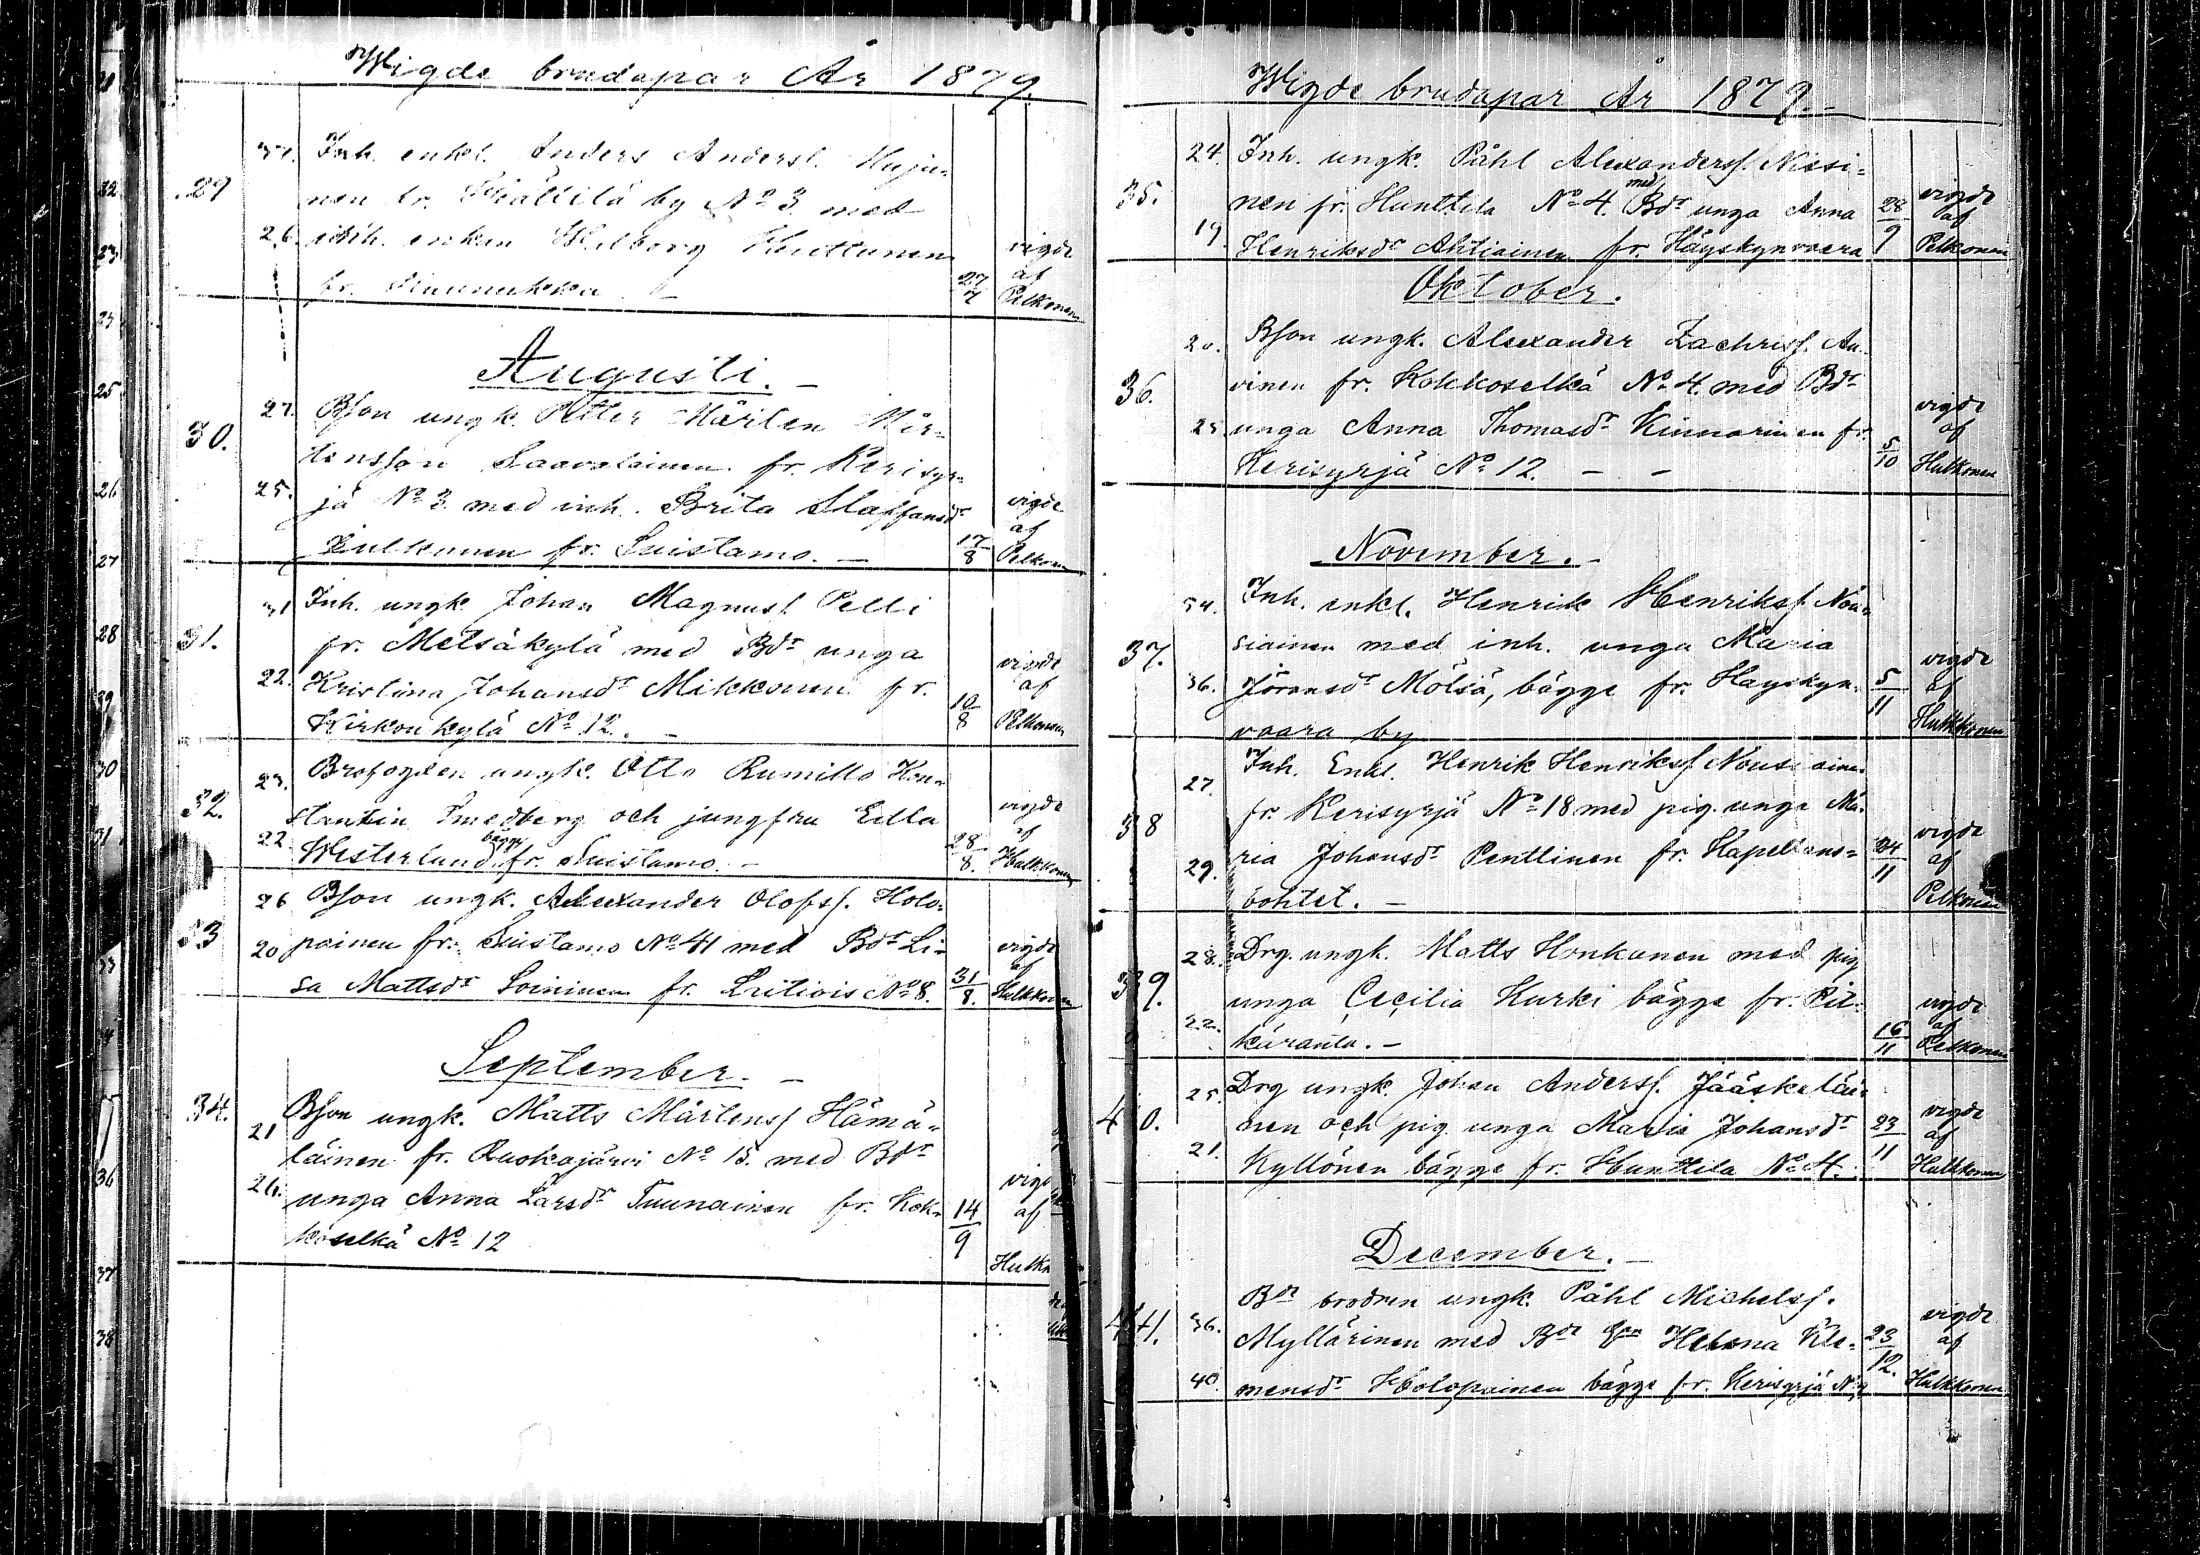 Wigde brudapar År 1879.
29
37. Inh. enkl. Anders Anderss. Huju-
nen fr. by No 3. med
26 inh. enkan Walborg Huttunen
fr. 27/7
vigde af Pelkonen
Augusti.
30.
27. Bson ungk. Petter Mårten Mår-
tensson Laavolainen fr. Kerisyr-
25. jä No 3 med inh. Brita Staffansdr
Kulkunen fr. Suistamo. 17/8
vigde af Pelkonen
31.
31 Inh. ungk. Johan Magnuss. Pelli
fr. Metsäkylä med Bdr unga
22. Kristina Johansdr Mikkonen fr.
Kirkonkylä No 12. 10/8
vigde af Pelkonen
32.
23. Brofogden ungk. Otto Rumillo Kon-
stantin Smedberg och jungfru Edla
22. Westerlund bägge fr. Suistamo. 28/8.
vigde af Hulkkonen
33
26 Bson ungk. Alexander Olofss. Holo-
20 painen fr. Suistamo No 41 med Bdr Li-
sa Mattsdr Soininen fr. Leiliois No 8. 31/8.
vigde af Hulkkonen
September.
34.
21 Bson ungk. Matts Mårtenss. Hämä-
läinen fr. Ruokojärvi No 15. med Bdr
26. unga Anna Larsdr Tuunainen fr. Kok-
koselkä No 12 14/9
vigde af
Wigde brudapar År 1879.-
35.
24. Inh. ungk. Påhl Alexanderss. Nissi-
nen fr. Hunttila No 4. med Bdr unga Anna
19. Henriksdr Ahtiainen fr. Häyskynvaara 28/9
vigde af Pelkonen
Oktober.
36.
20. Bson ungk. Alexander Zachriss. Au-
vinen fr. Kokkoselkä No 4. med Bdr
25 unga Anna Thomasdr Kinnarinen fr.
Kerisyrjä No 12. - - 5/10
vigde af Hulkonen
November.-
37.
54. Inh. enkl. Henrik Henrikss. Nou-
siainen med inh. unga Maria
36. Jöransdr Mölsä, bägge fr. Hayskyn-
vaara by 5/11
vigde af Hulkkonen
38
27. Inh. Enkl. Henrik Henrikss. Nousiainen
fr. Kerisyrjä No 18 med pig. unga Ma-
29. ria Johansdr Penttinen fr. Kapellans-
bohlet. - 24/11
vigde af Pelkonen
39.
28. Drg. ungk. Matts Honkanen med pig
unga Cecilia Kurki bägge fr. Pit-
22. käranta. - 16/11
vigde af Pelkonen
40.
25. Drg ungk. Johan Anderss. Jääskeläi-
nen och pig. unga Maria Johansdr
21. Kyllönen bägge fr. Hunttila No 4. 23/11
vigde af Hulkkonen
December.-
41.
36. Bdr brodren ungk. Påhl Michelss.
Myllärinen med Bdr Helena Kle-
40. mensdr Holopainen bägge fr. Kerisyrjä No 9 23/12.
vigde af Hulkkonen